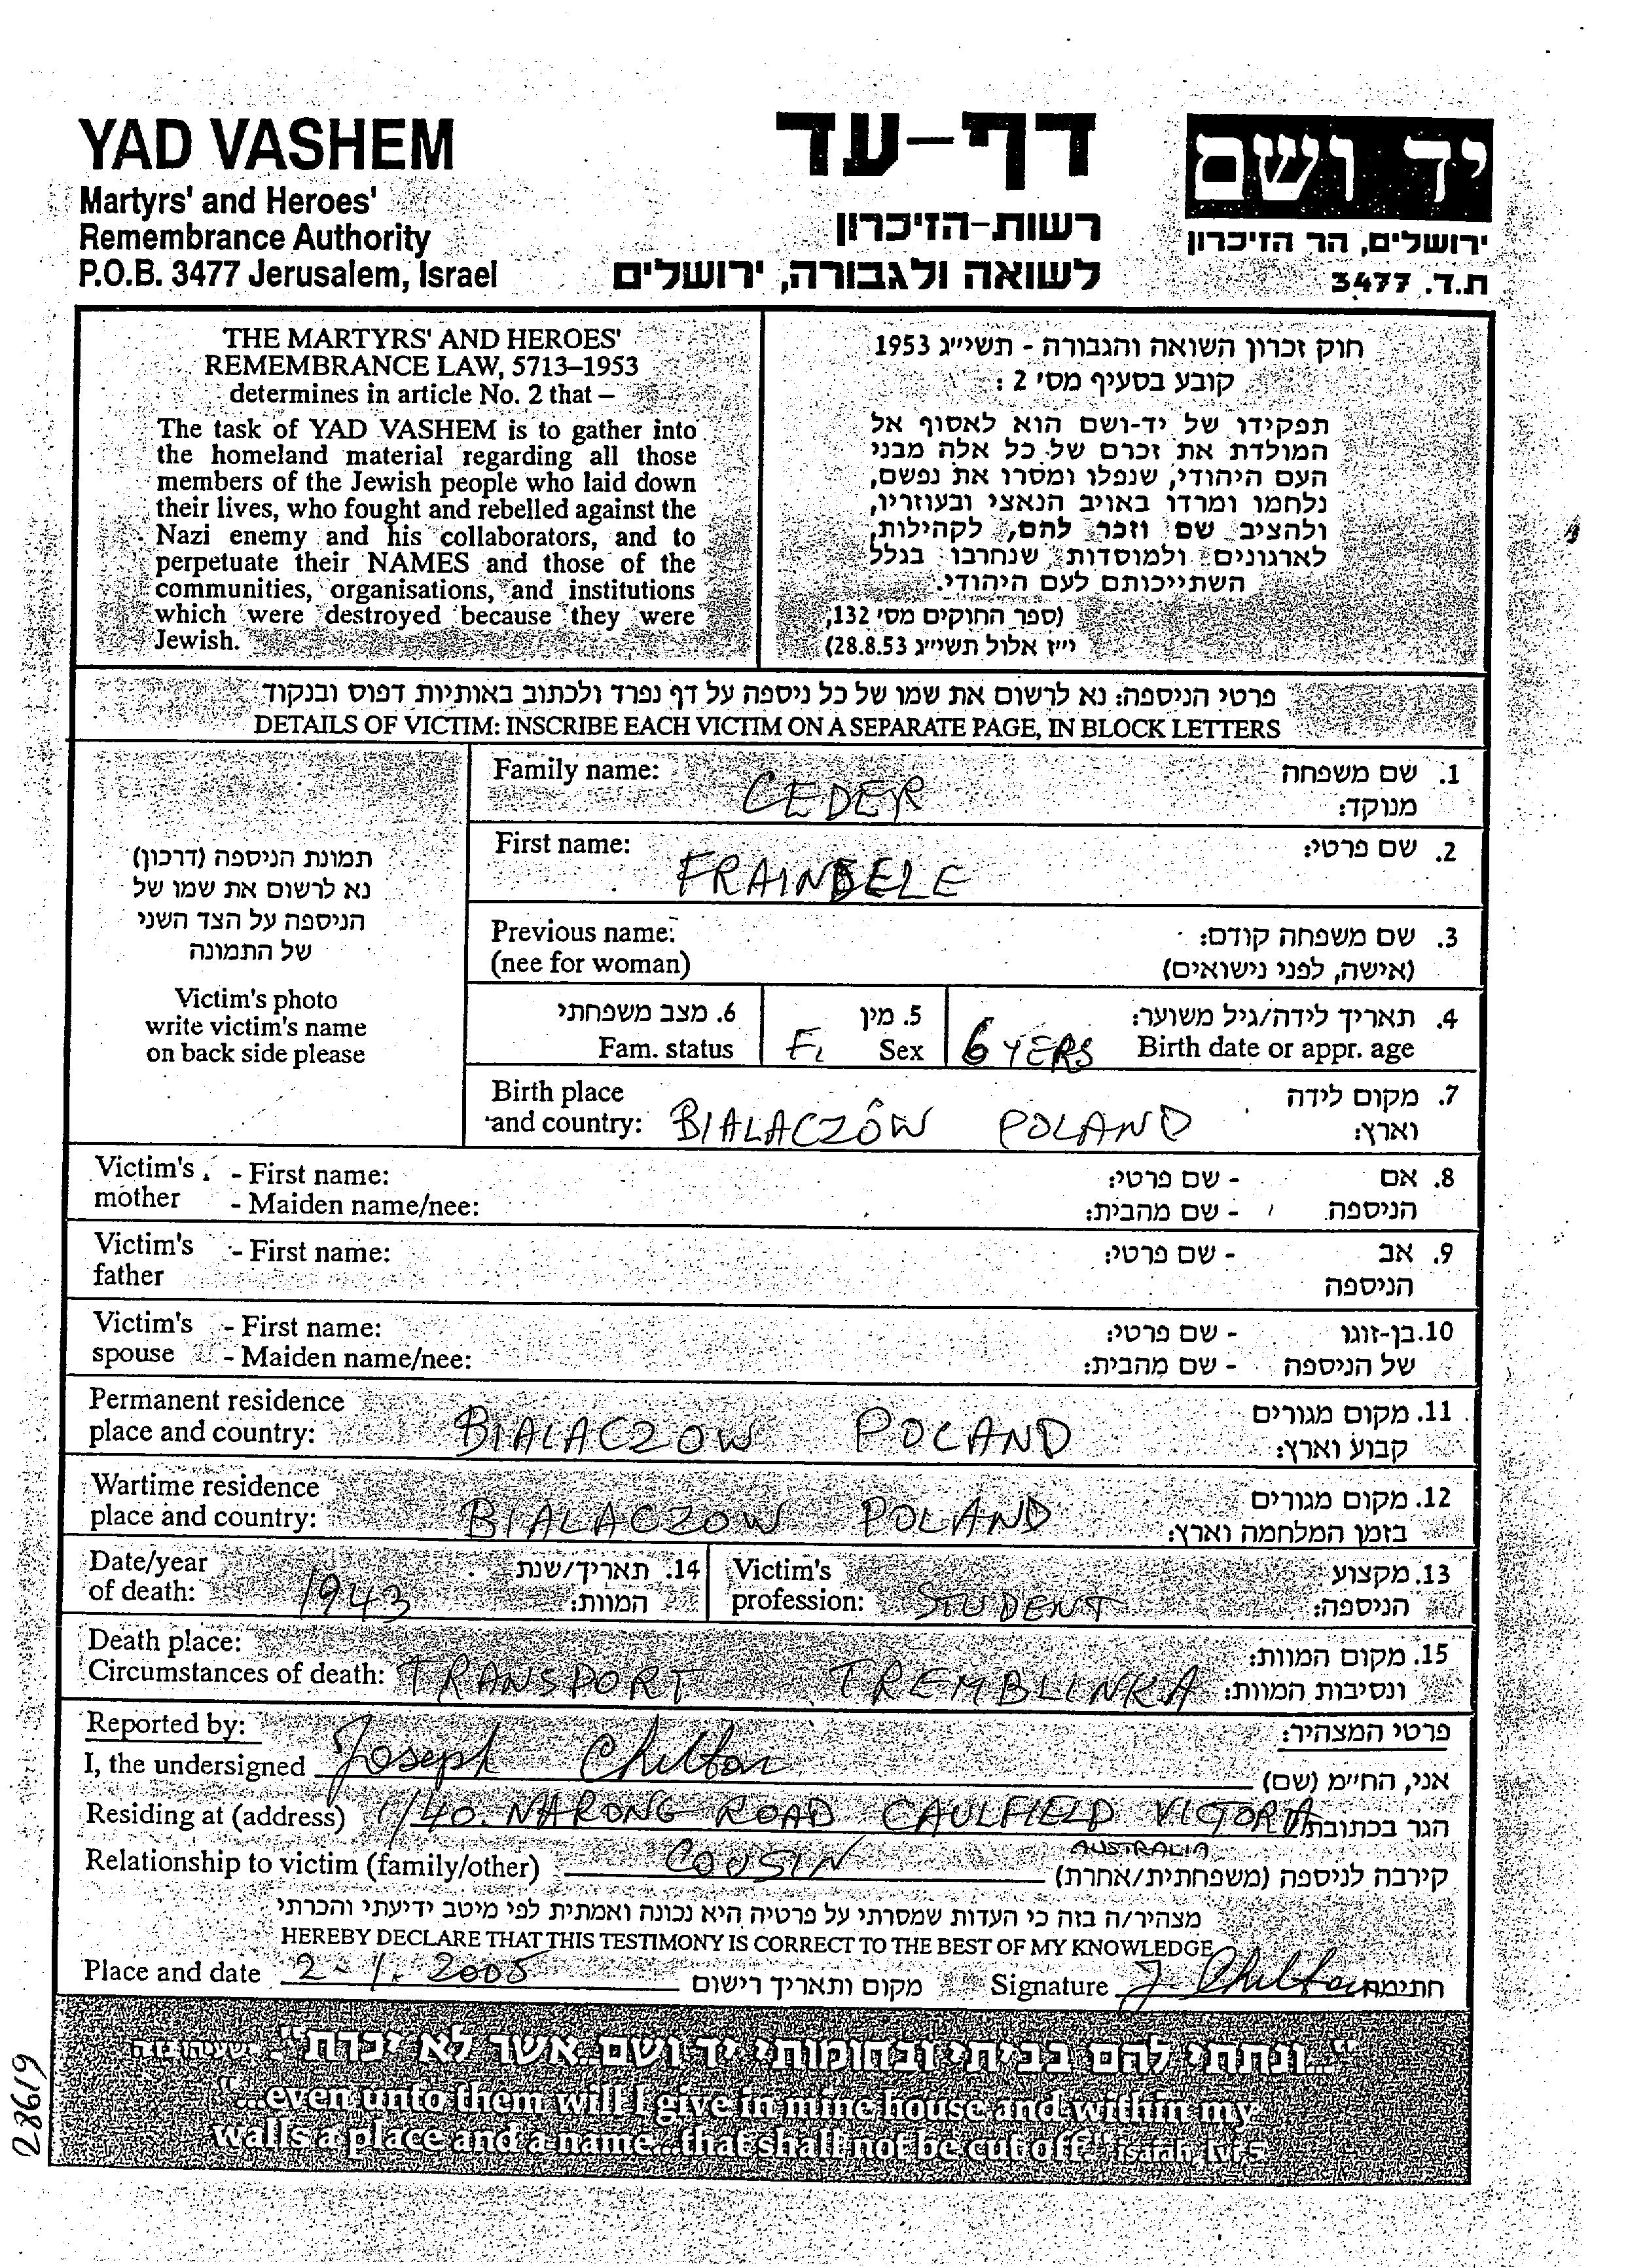 YAD VASHEM
Martyrs' and Heroes'
Remembrance Authority
P.O.B. 3477 Jerusalem, Israel
דף-עד
רשות-הזיכרון
לשואה ולגבורה, ירושלים
יד ושם
ירושלים, הר הזיכרון
ת.ד. 3477
THE MARTYRS' AND HEROES'
REMEMBRANCE LAW, 5713–1953
determines in article No. 2 that –
The task of YAD VASHEM is to gather into
the homeland material regarding all those
members of the Jewish people who laid down
their lives, who fought and rebelled against the
Nazi enemy and his collaborators, and to
perpetuate their NAMES and those of the
communities, organisations, and institutions
which were destroyed because they were
Jewish.
חוק זכרון השואה והגבורה - תשי״ג 1953
קובע בסעיף מס׳ 2 :
תפקידו של יד-ושם הוא לאסוף אל
המולדת את זכרם של כל אלה מבני
העם היהודי, שנפלו ומסרו את נפשם,
נלחמו ומרדו באויב הנאצי ובעוזריו,
ולהציב שם וזכר להם, לקהילות,
לארגונים ולמוסדות שנחרבו בגלל
השתייכותם לעם היהודי.
(ספר החוקים מס׳ 132,
י״ז אלול תשי״ג 28.8.53)
פרטי הניספה: נא לרשום את שמו של כל ניספה על דף נפרד ולכתוב באותיות דפוס ובנקוד
DETAILS OF VICTIM: INSCRIBE EACH VICTIM ON A SEPARATE PAGE, IN BLOCK LETTERS
תמונת הניספה (דרכון)
נא לרשום את שמו של
הניספה על הצד השני
של התמונה
Victim's photo
write victim's name
on back side please
Family name: CEDER 1. שם משפחה
מנוקד:
First name: FRAINDELE 2. שם פרטי:
Previous name: 3. שם משפחה קודם:
(nee for woman) (אישה, לפני נישואים)
6. מצב משפחתי 5. מין 4. תאריך לידה/גיל משוער:
Fam. status F. Sex 6 YERS Birth date or appr. age
Birth place 7. מקום לידה
and country: BIALACZÔW POLAND וארץ:
Victim's - First name: - שם פרטי: 8. אם
mother - Maiden name/nee: - שם מהבית: הניספה
Victim's - First name: - שם פרטי: 9. אב
father הניספה
Victim's - First name: - שם פרטי: 10. בן-זוגו
spouse - Maiden name/nee: - שם מהבית: של הניספה
Permanent residence 11. מקום מגורים
place and country: BIALACZOW POLAND קבוע וארץ:
Wartime residence 12. מקום מגורים
place and country: BIALACZOW POLAND בזמן המלחמה וארץ:
Date/year 14. תאריך/שנת Victim's 13. מקצוע
of death: 1943 המוות: profession: STUDENT הניספה:
Death place: 15. מקום המוות:
Circumstances of death: TRANSPORT TREMBLINKA ונסיבות המוות:
Reported by: פרטי המצהיר:
I, the undersigned Joseph Chilton אני, החי״מ (שם)
Residing at (address) 1/40. NARONG ROAD CAULFIELD VICTORIA הגר בכתובת
AUSTRALIA
Relationship to victim (family/other) COUSIN קירבה לניספה (משפחתית/אחרת)
מצהיר/ה בזה כי העדות שמסרתי על פרטיה היא נכונה ואמתית לפי מיטב ידיעתי והכרתי
HEREBY DECLARE THAT THIS TESTIMONY IS CORRECT TO THE BEST OF MY KNOWLEDGE
Place and date 2-1. 2005 מקום ותאריך רישום Signature J. Chilton חתימת
"...ונתתי להם בביתי ובחומותי יד ושם...אשר לא יכרת".
"...even unto them will I give in mine house and within my
walls a place and a name...that shall not be cut off." isaiah, lvi,5
28619